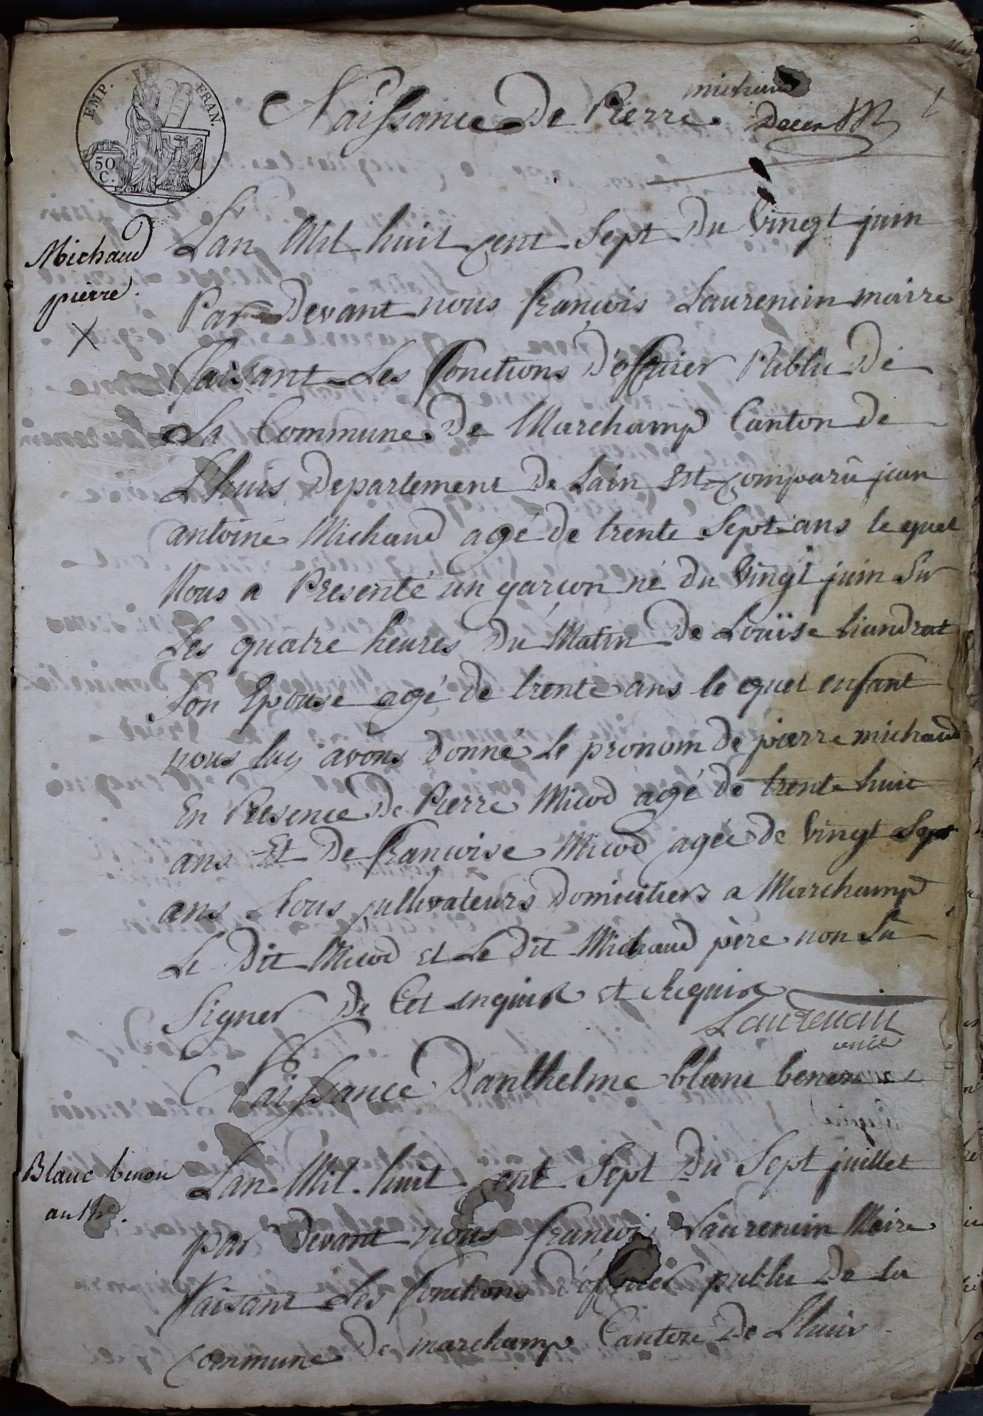 EMP. FRAN.
50 C.
michaud
Naissance de Pierre
Michaud
pierre
X
Lan Mil huit cent Sept du Vingt juin
Par devant nous françois Laurencin maire
Faisant Les fonctions d'officier Public de
La Commune de Marchamp Canton de
Lhuis departement de Lain Est comparû jean
antoine Michaud agé de trente Sept ans le quel
Nous a Presenté un garçon né du Vingt juin Sur
Les quatre heures du Matin de Louïse biandrat
Son Epouse agé de trente ans le quel enfant
nous luy avons donné Le pronom de pierre michaud
En Présence de Pierre Micod agé de trente huit
ans Et de françoise Micod agée de Vingt Sept
ans Tous cultivateurs Domicilies a Marchamp
Le Dit Micod et Le Dit Michaud père non Su
Signer De Cet enquis et Requis
Laurencin
Naissance D'anthelme blanc benon
Blanc benon
anth.
Lan Mil huit cent Sept Du Sept juillet
par devant nous françois Laurencin Maire
Faisant Les fonctions d'officier public de La
commune De marchamp Canton De Lhuis